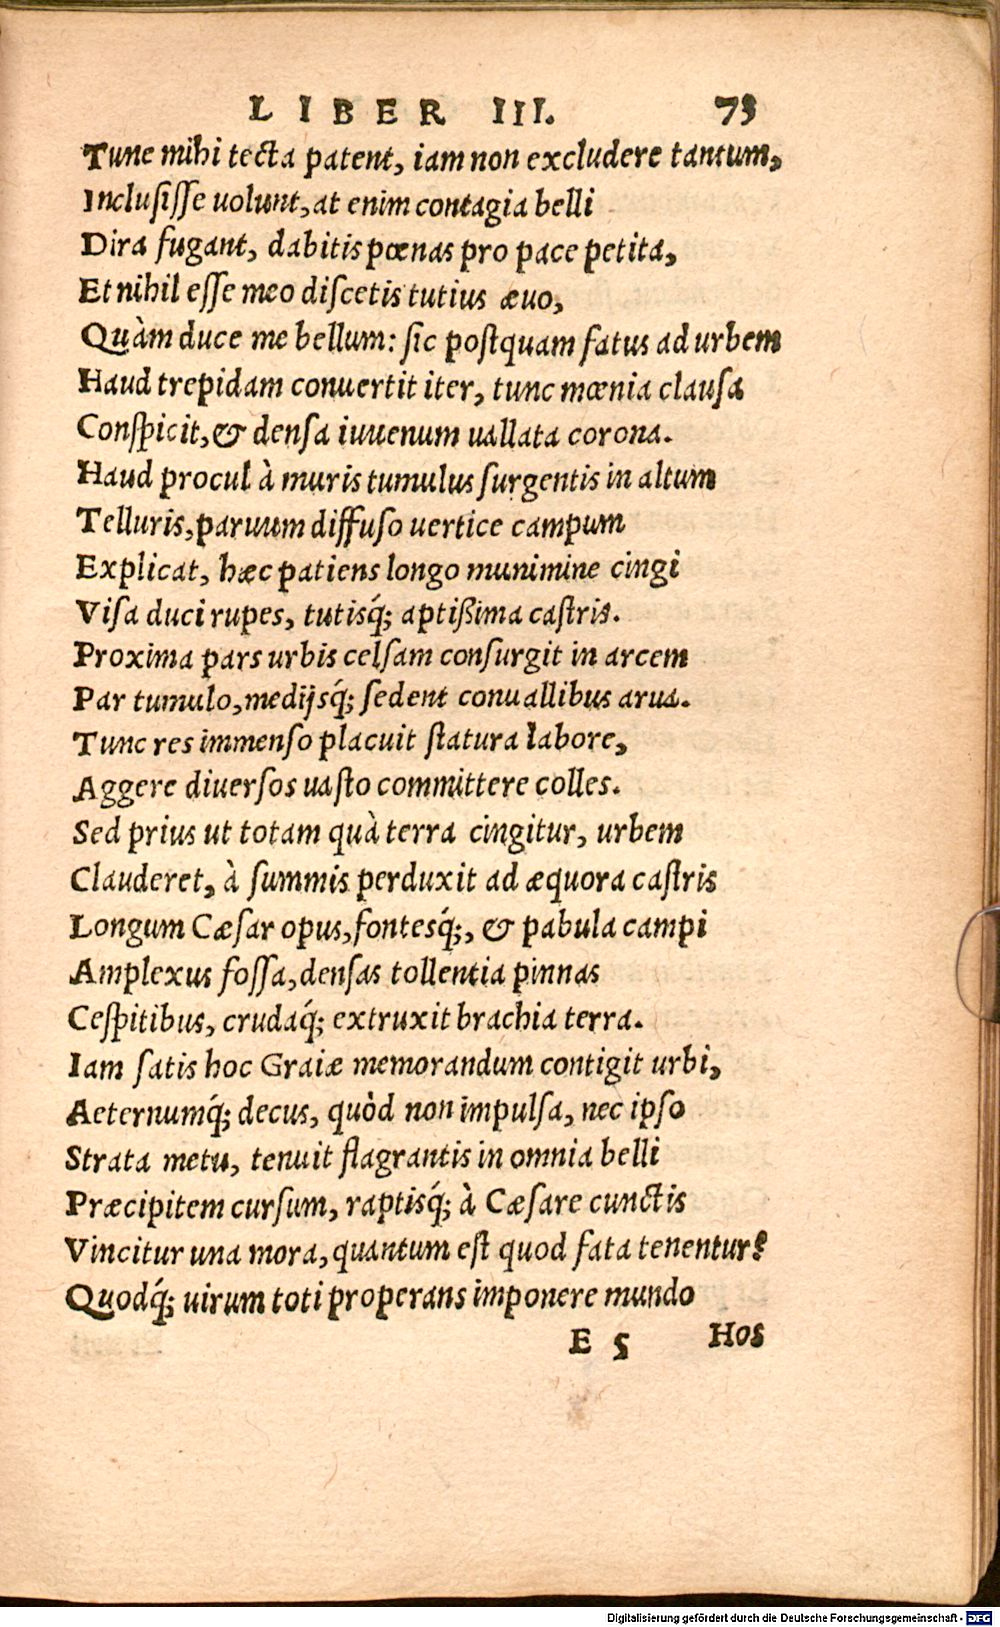 LIBER III. 73
Tunc mihi tecta patent, iam non excludere tantum,
Inclusiſſe uolunt, at enim contagia belli
Dira fugant, dabitis pœnas pro pace petita,
Et nihil eſſe meo diſcetis tutius æuo,
Quàm duce me bellum: ſic poſtquam fatus ad urbem
Haud trepidam conuertit iter, tunc mœnia clauſa
Conſpicit, & denſa iuuenum uallata corona.
Haud procul à muris tumulus ſurgentis in altum
Telluris, paruum diffuſo uertice campum
Explicat, hæc patiens longo munimine cingi
Viſa duci rupes, tutisq́; aptißima caſtris.
Proxima pars urbis celſam conſurgit in arcem
Par tumulo, medijsq́; ſedent conuallibus arua.
Tunc res immenſo placuit ſtatura labore,
Aggere diuerſos uaſto committere colles.
Sed prius ut totam quà terra cingitur, urbem
Clauderet, à ſummis perduxit ad æquora caſtris
Longum Cæſar opus, fontesq́;, & pabula campi
Amplexus foſſa, denſas tollentia pinnas
Ceſpitibus, crudaq́; extruxit brachia terra.
Iam ſatis hoc Graiæ memorandum contigit urbi,
Aeternumq́; decus, quòd non impulſa, nec ipſo
Strata metu, tenuit flagrantis in omnia belli
Præcipitem curſum, raptisq́; à Cæſare cunctis
Vincitur una mora, quantum eſt quod fata tenentur?
Quodq́; uirum toti properans imponere mundo
E 5 Hos
Digitalisierung gefördert durch die Deutsche Forschungsgemeinschaft - DFG